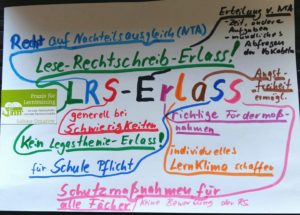 Erteilung v. NTA
- Zeit, andere
Aufgaben
- mündliches
Abfragen
der Vokabeln
Recht auf Nachteilsausgleich (NTA)
Lese-Rechtschreib-Erlass!
LRS-ErLaSS
Angst
freiheit
ermögl.
Praxis für
Lerntraining
generell bei
Schwierigkeiten
richtige Fördermaß-
nahmen
Kein Legasthenie-Erlass!
individuelles
LernKlima schaffen
für Schule Pflicht
Schutzmaßnahmen für
alle Fächer
keine Bewertung der RS